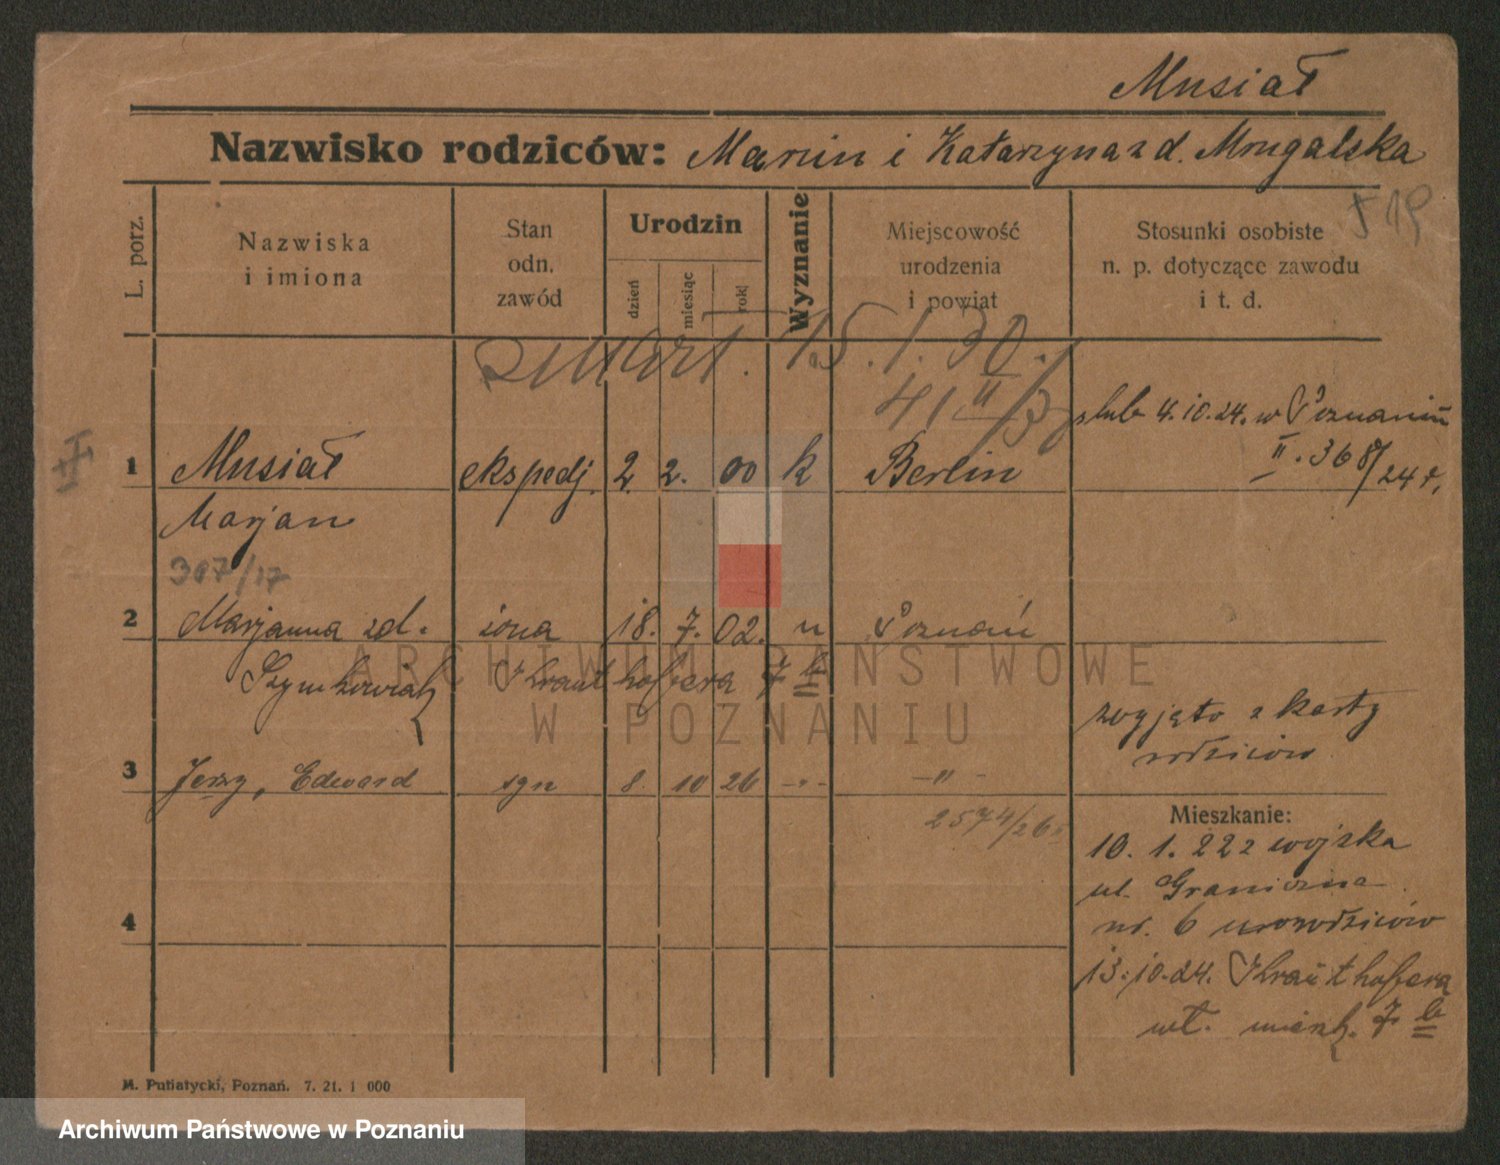 Musiał
Nazwisko rodziców: Marcin i Katarzyna z d. Mrugalska
L. porz.
Nazwiska
i imiona
Stan
odn.
zawód
Urodzin
dzień
miesiąc
rok
Wyznanie
Miejscowość
urodzenia
i powiat
Stosunki osobiste
n. p. dotyczące zawodu
i t. d.
zmarł. 15.1.30.
41 II/30
ślub 4.10.24. w Poznaniu
II. 368/24 r.
1 Musiał ekspedj. 2. 2. 00 k Berlin
Marjan
307/17
2 Marjanna zd. żona 18. 7. 02. n Poznań
Szymkowiak Krauthofera 7 b
3 Jerzy, Edward syn 8. 10 26 -"- -"-
2574/26
zdjęto z karty
rodziców
Mieszkanie:
10. 1. 22 z wojska
ul. Graniczna
nr. 6 u rodziców
13.10.24. Krauthofera
wł. mieszk. 7 b
4
M. Putiatycki, Poznań. 7. 21. 1 000
ARCHIWUM PAŃSTWOWE
W POZNANIU
Archiwum Państwowe w Poznaniu